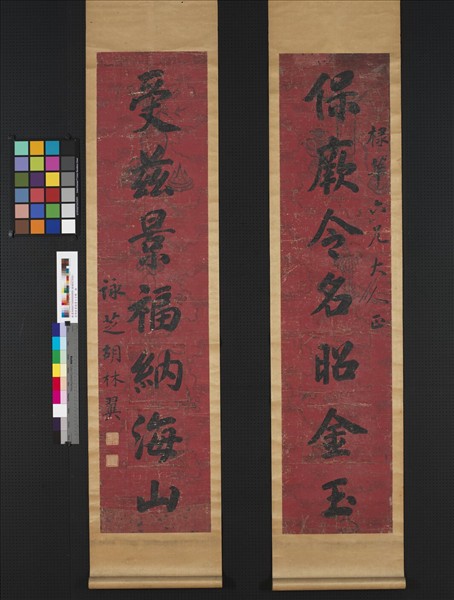 保厥令名昭金玉
棣華六兄大人正
受茲景福納海山
詠芝胡林翼